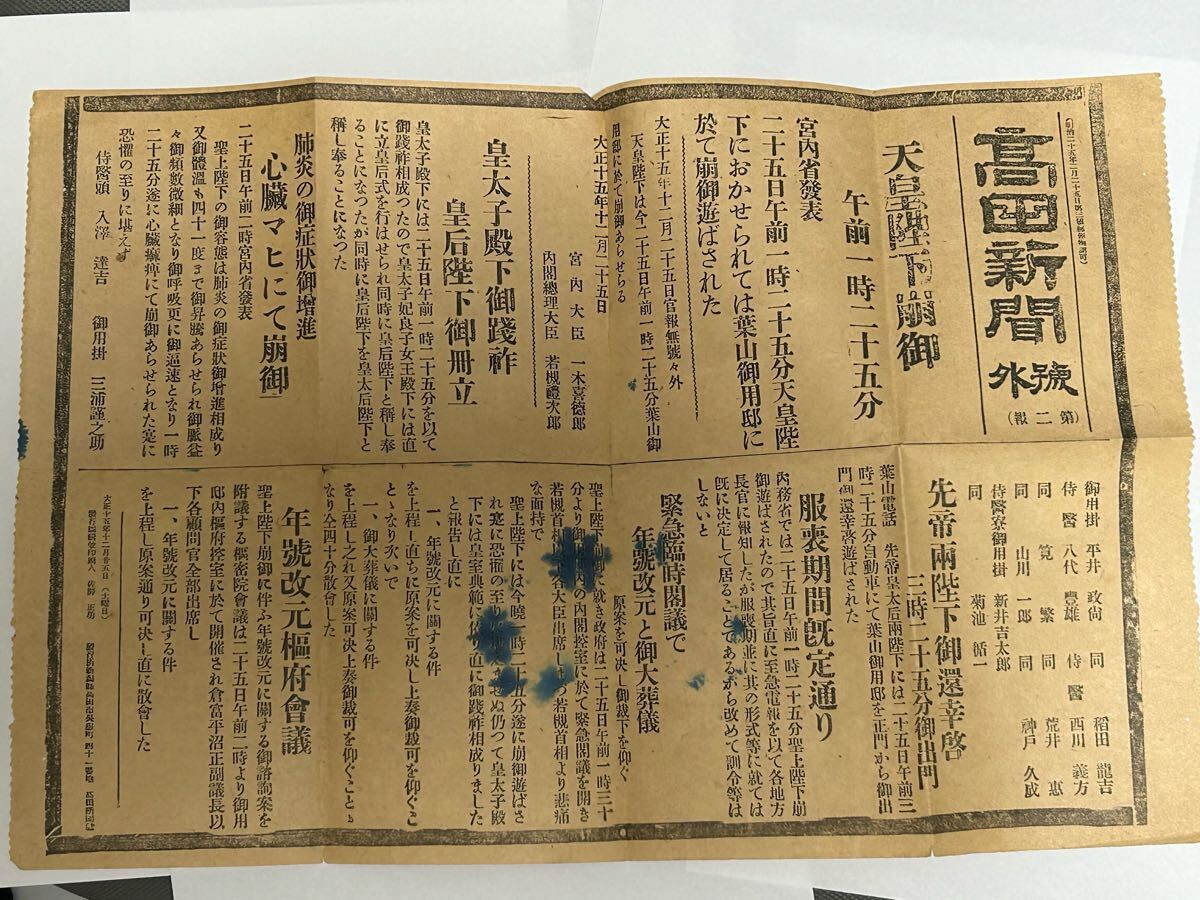 高田新聞
號外
(第二報)
天皇陛下崩御
午前一時二十五分
宮內省發表
二十五日午前一時二十五分天皇陛
下におかせられては葉山御用邸に
於て崩御遊ばされた
大正十五年十二月二十五日官報無號々外
天皇陛下は今二十五日午前一時二十五分葉山御
用邸に於て崩御あらせらる
大正十五年十二月二十五日
宮內大臣 一木喜德郎
內閣總理大臣 若槻禮次郎
皇太子殿下御踐祚
皇后陛下御册立
皇太子殿下には二十五日午前一時二十五分を以て
御踐祚相成つたので皇太子妃良子女王殿下には直
に立皇后式を行はせられ同時に皇后陛下と稱し奉
ることになつたが同時に皇后陛下を皇太后陛下と
稱し奉ることになつた
肺炎の御症狀御增進
心臟マヒにて崩御
二十五日午前二時宮內省發表
聖上陛下の御容態は肺炎の御症狀御增進相成り
又御體溫も四十一度まで御昇騰あらせられ御脈益
々御頻數微細となり御呼吸更に御逼速となり一時
二十五分遂に心臟痲痺にて崩御あらせられた寔に
恐懼の至りに堪えず
侍醫頭 入澤 達吉 御用掛 三浦謹之助
御用掛 平井 政尙 同 稻田 龍吉
侍醫 八代 豐雄 侍醫 西川 義方
同 筧 繁 同 荒井 惠
同 山川 一郎 同 神戶 久成
侍醫寮御用掛 新井吉太郎
同 菊池 循一
先帝兩陛下御還幸啓
三時二十五分御出門
葉山電話 先帝皇太后兩陛下には二十五日午前三
時二十五分自動車にて葉山御用邸を正門から御出
門御還幸啓遊ばされた
服喪期間旣定通り
內務省では二十五日午前一時二十五分聖上陛下崩
御遊ばされたので其旨直に至急電報を以て各地方
長官に報知したが服喪期並に其の形式等に就ては
旣に決定して居ることであるから改めて訓令等は
しないと
緊急臨時閣議で
年號改元と御大葬儀
原案を可決し御裁下を仰ぐ
聖上陛下崩御に就き政府は二十五日午前一時三十
分より御用邸內の內閣控室に於て緊急閣議を開き
若槻首相以下各大臣出席しまづ若槻首相より悲痛
な面持で
聖上陛下には今曉一時二十五分遂に崩御遊ばさ
れ寔に恐懼の至りに堪えませぬ仍つて皇太子殿
下には皇室典範に依り直に御踐祚相成りました
と報告し直に
一、年號改元に關する件
を上程し直ちに原案を可決し上奏御裁可を仰ぐこ
とゝなり次いで
一、御大葬儀に關する件
を上程し之れ又原案可決上奏御裁可を仰ぐことゝ
なり仝四十分散會した
年號改元樞府會議
聖上陛下崩御に伴ふ年號改元に關する御諮詢案を
附議する樞密院會議は二十五日午前二時より御用
邸內樞府控室に於て開催され倉富平沼正副議長以
下各顧問官全部出席し
一、年號改元に關する件
を上程し原案通り可決し直に散會した
大正十五年十二月廿五日 (土曜日)